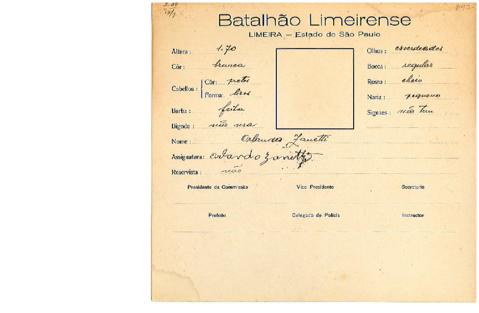 Batalhão Limeirense
LIMEIRA — Estado de São Paulo
Altura : 1.70
Côr: branca
Cabellos: Côr: preto
Forma: liso
Barba : feita
Bigode : não usa
Nome : Zanetti
Assignatura:
Reservista : não
Olhos : esverdeados
Bocca : regular
Rosto : cheio
Nariz : pequeno
Signaes : não tem
Presidente da Commissão Vice Presidente Secretario
Prefeito Delegado de Policia Instructor